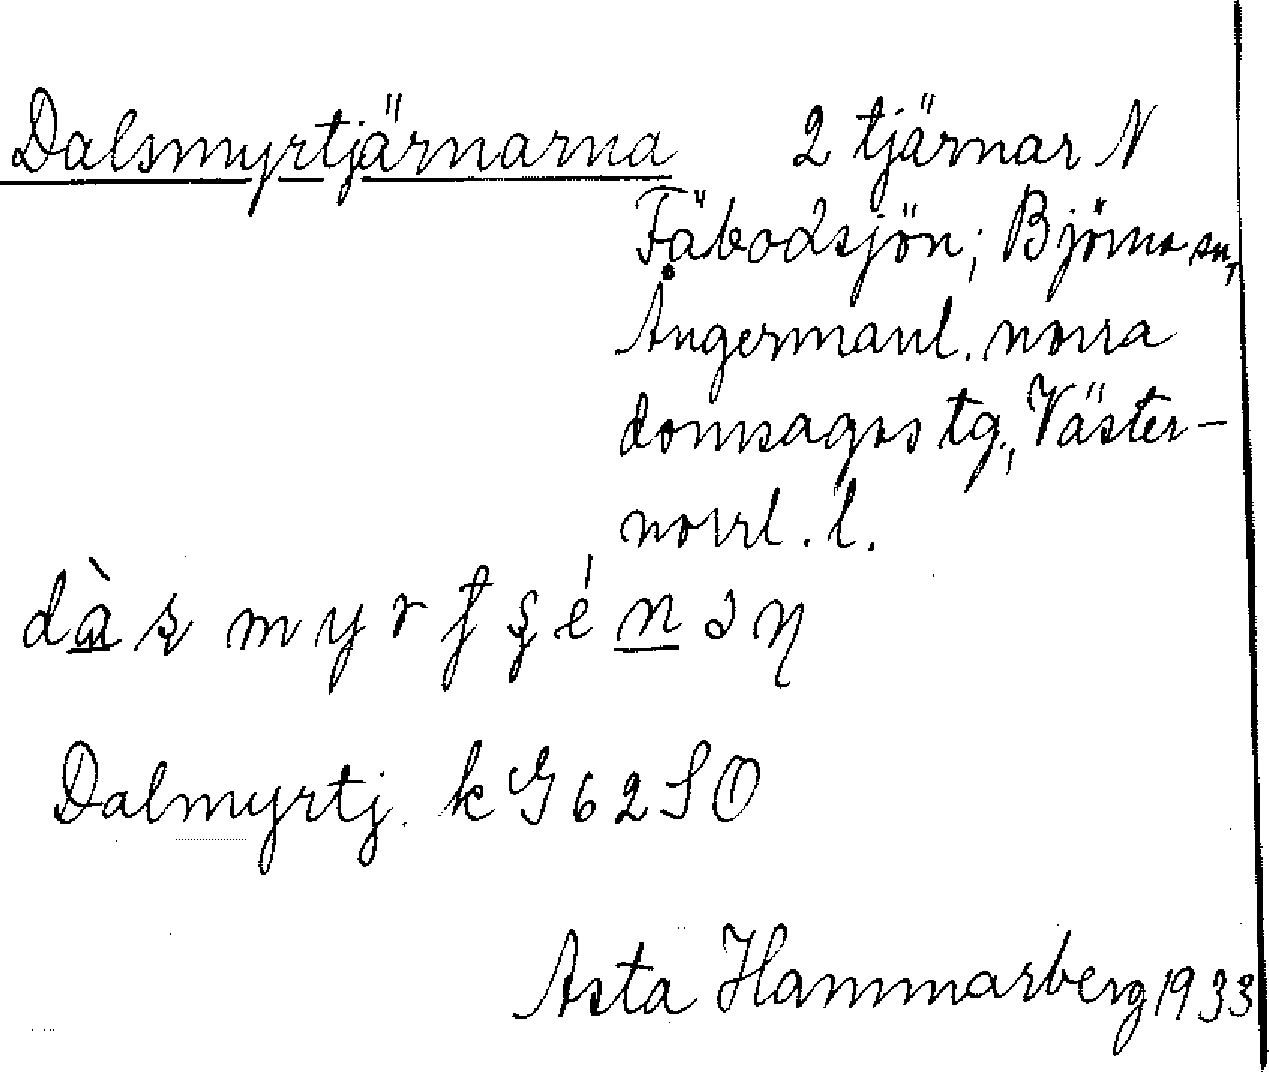 Dalsmyrtjärnarna 2 tjärnar N
Fäbodsjön; Björna sn,
Ångermanl. norra
domsagas tg., Väster-
norrl. l.
dàs myr
Dalmyrtj. k G 62 SO
Asta Hammarberg 1933